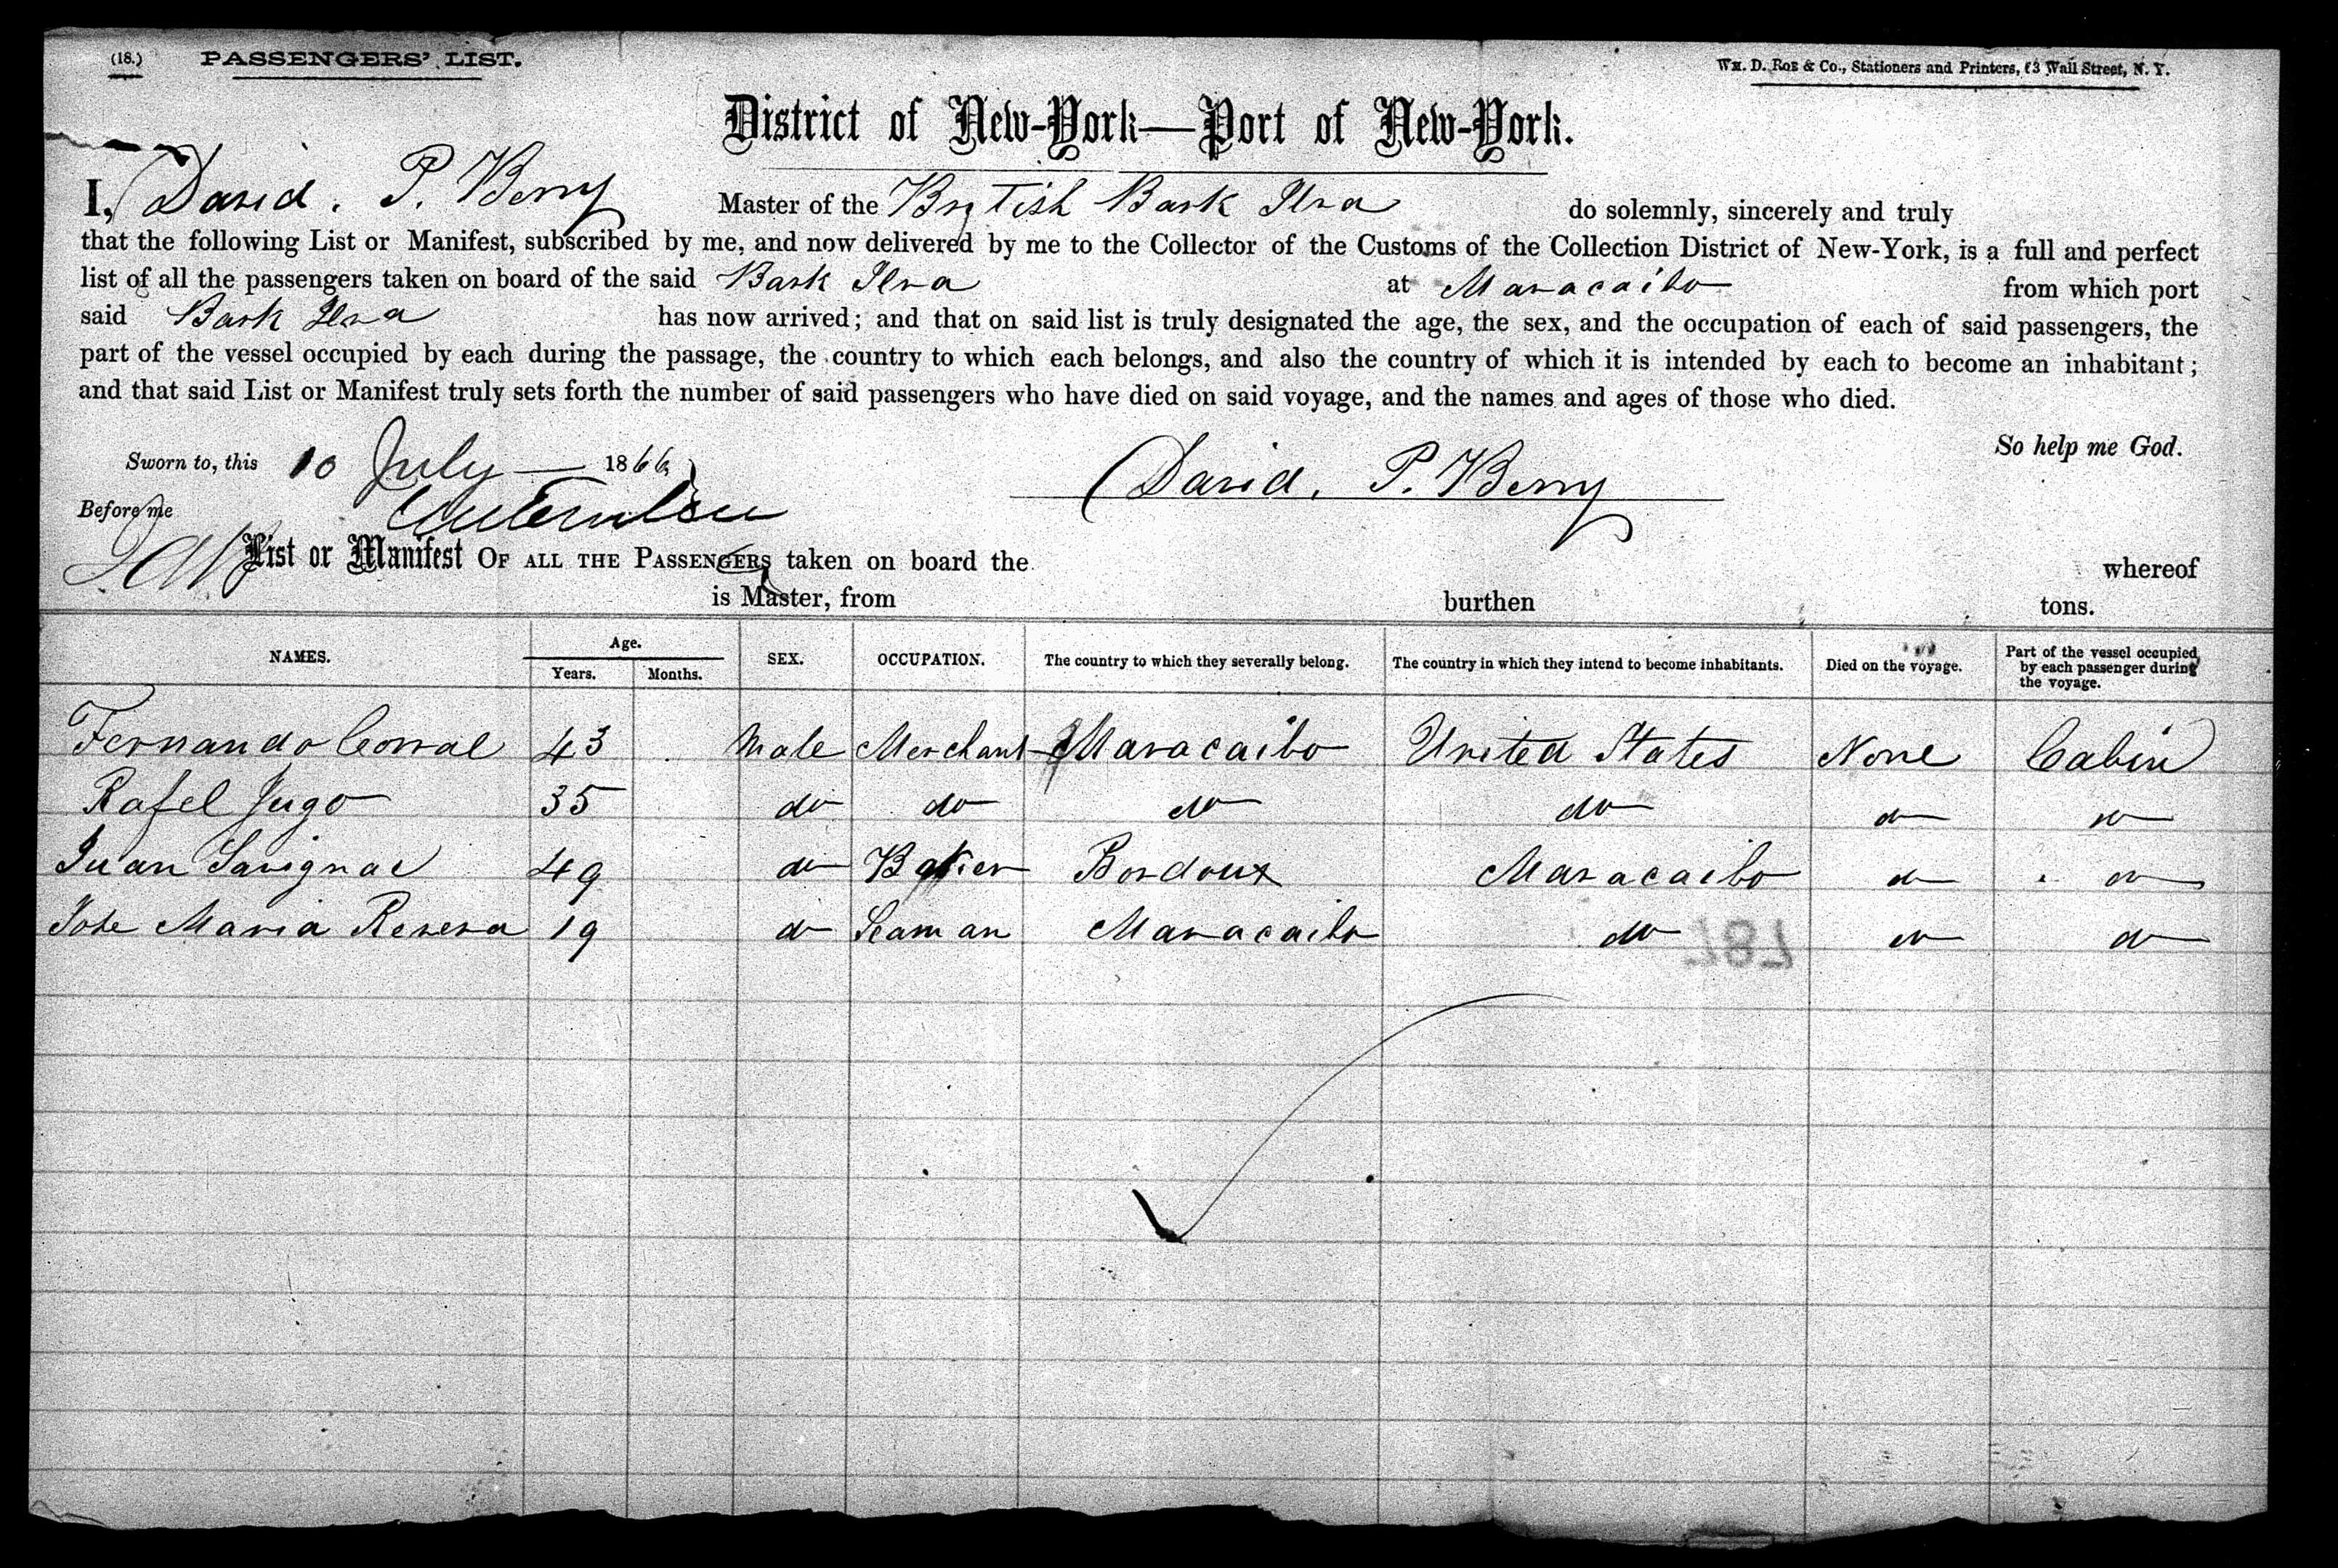 (18.) PASSENGERS' LIST. WM. D. ROE & CO., Stationers and Printers, 63 Wall Street, N. Y.
District of New-York—Port of New-York.
I, David. P. Berry Master of the British Bark Ilva do solemnly, sincerely and truly
that the following List or Manifest, subscribed by me, and now delivered by me to the Collector of the Customs of the Collection District of New-York, is a full and perfect
list of all the passengers taken on board of the said Bark Ilva at Maracaibo from which port
said Bark Ilva has now arrived; and that on said list is truly designated the age, the sex, and the occupation of each of said passengers, the
part of the vessel occupied by each during the passage, the country to which each belongs, and also the country of which it is intended by each to become an inhabitant;
and that said List or Manifest truly sets forth the number of said passengers who have died on said voyage, and the names and ages of those who died.
So help me God.
Sworn to, this 10 July 1866 David. P. Berry
Before me
List or Manifest OF ALL THE PASSENGERS taken on board the whereof
is Master, from burthen tons.
NAMES. Age. Years. Months. SEX. OCCUPATION. The country to which they severally belong. The country in which they intend to become inhabitants. Died on the voyage. Part of the vessel occupied by each passenger during the voyage.
Fernando Corral 43 Male Merchant Maracaibo United States None Cabin
Rafel Jugo 35 do do do do do do
Juan Savignac 49 do Baker Bordoux Maracaibo do do
Jose Maria Rerera 19 do Seaman Maracaibo do do do
787